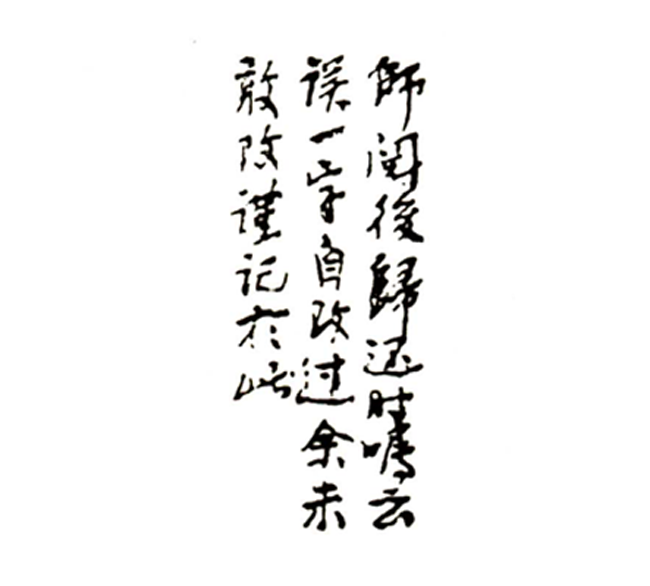 師閱後歸還時嘱云
误一字自改过余未
敢改謹記於此